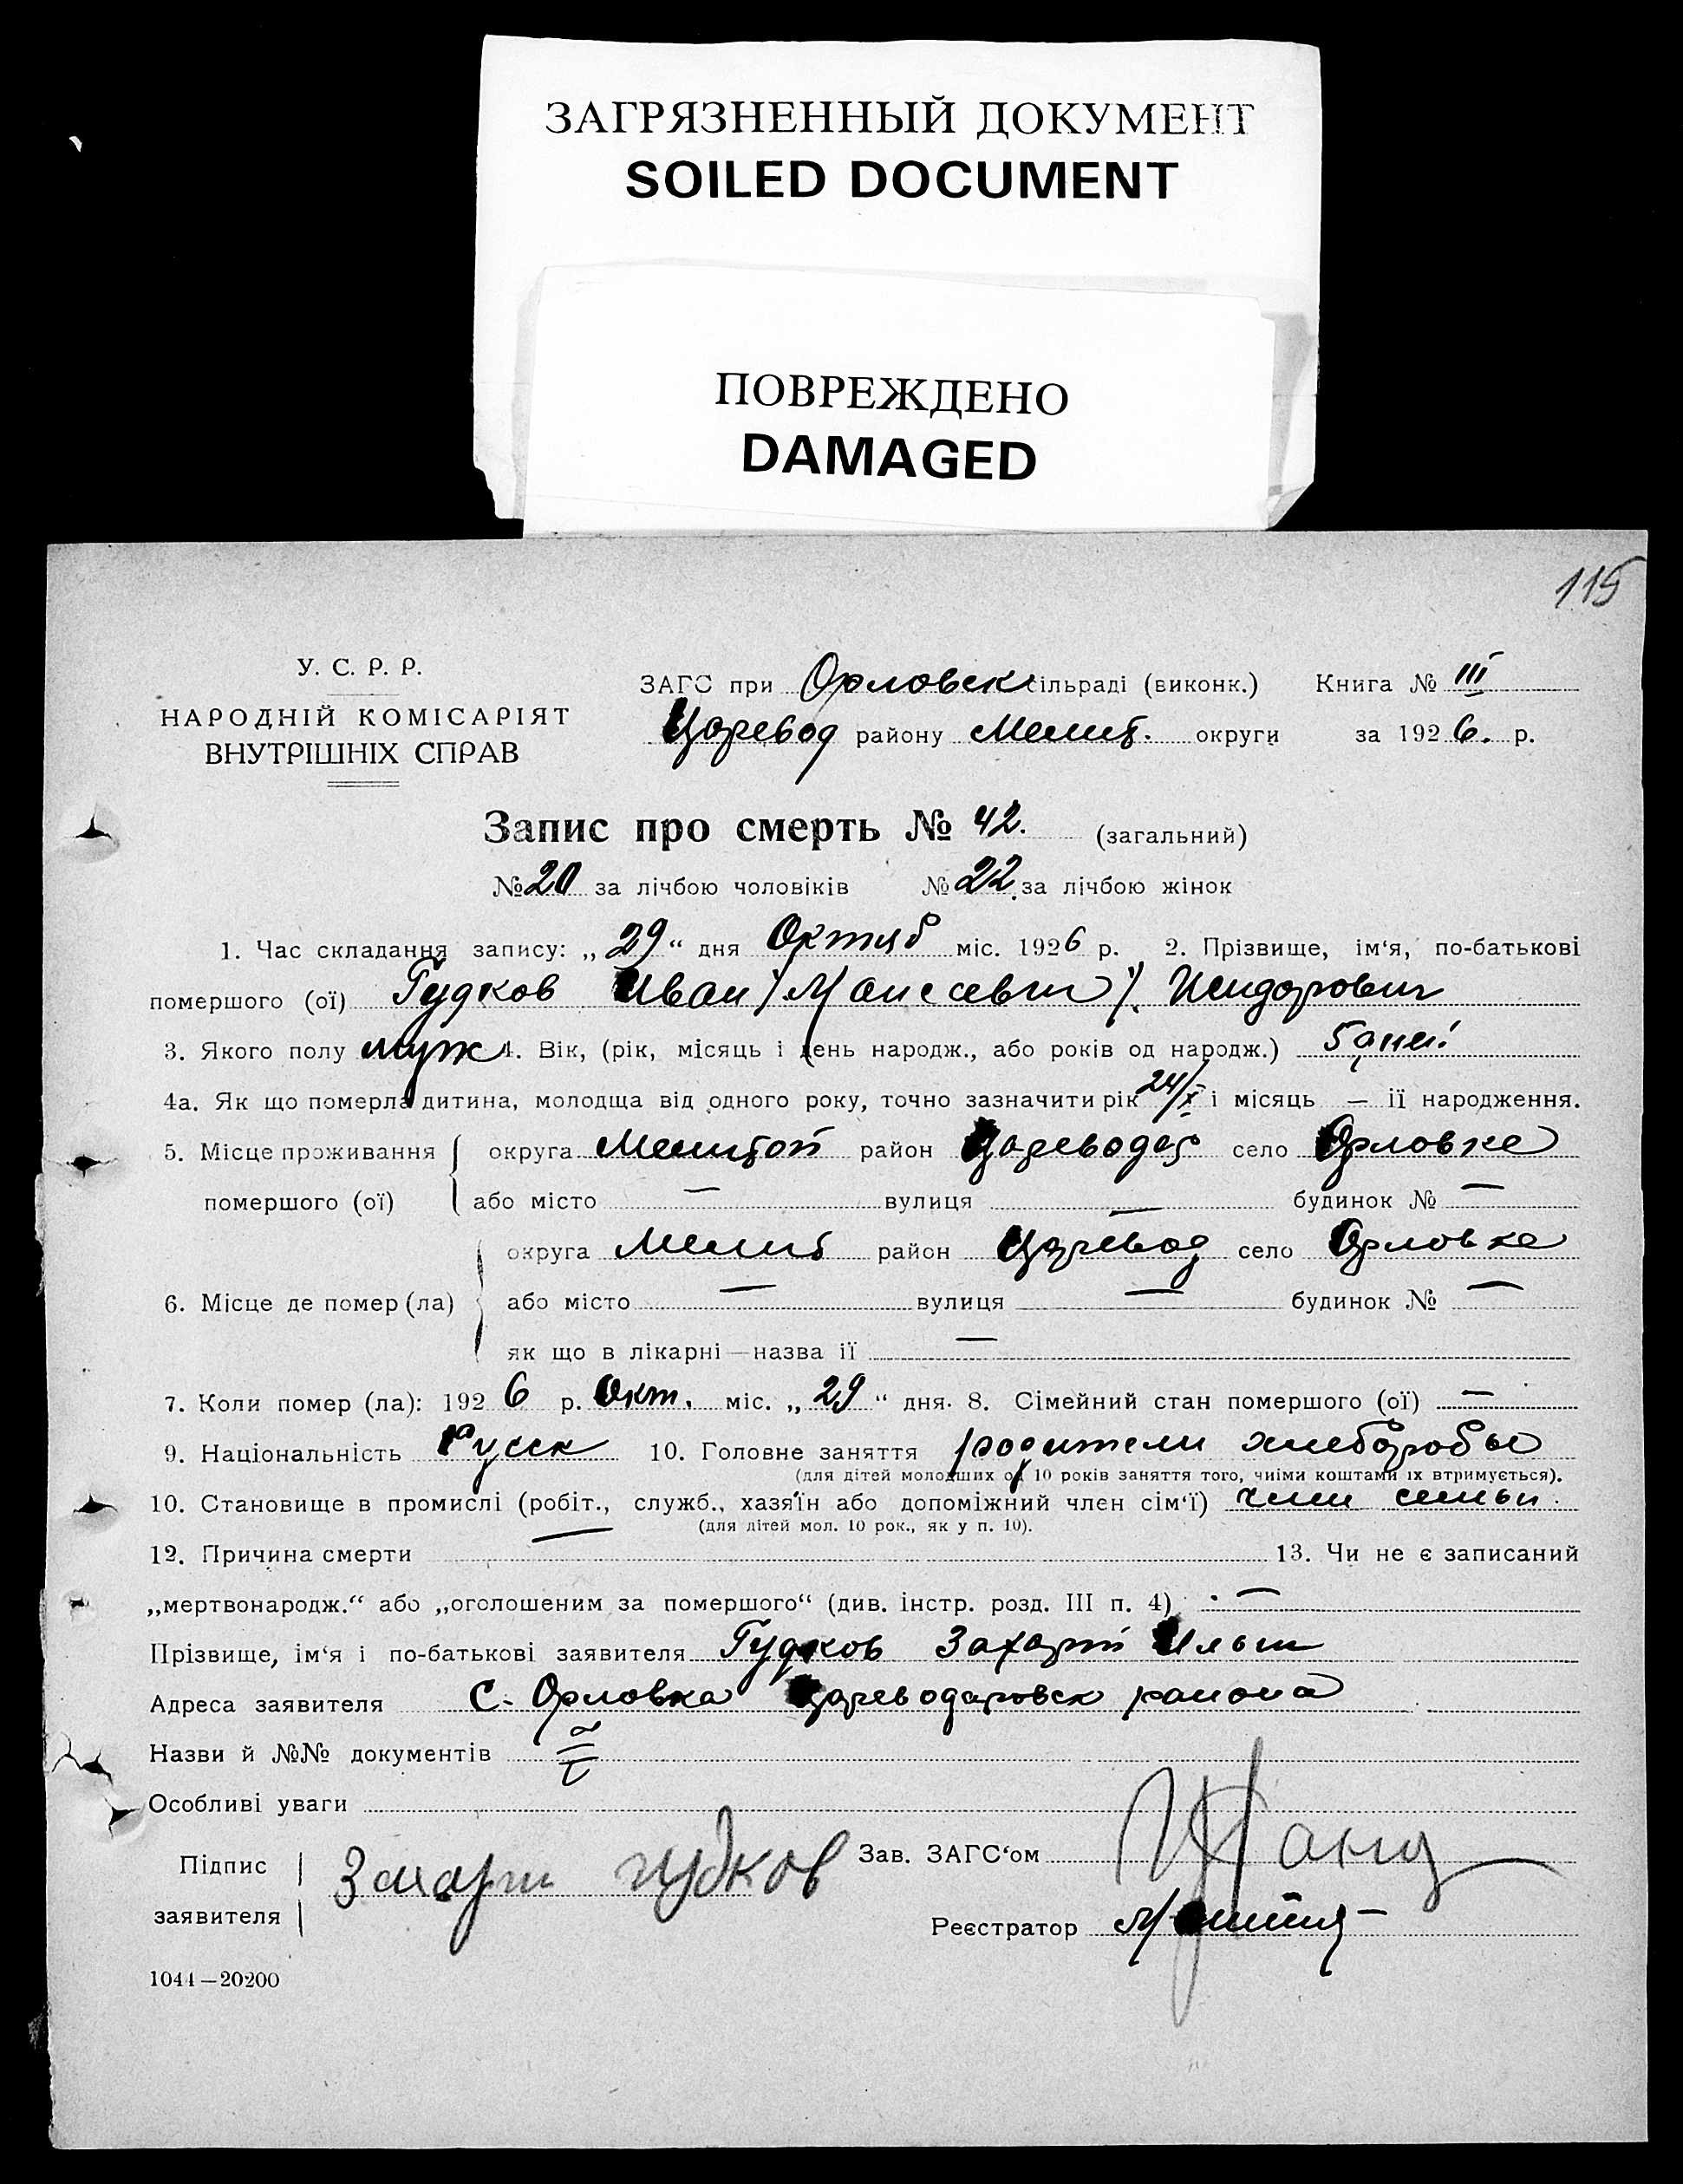 ЗАГРЯЗНЕННЫЙ ДОКУМЕНТ
SOILED DOCUMENT
ПОВРЕЖДЕНО
DAMAGED
115
У. С. Р. Р.
НАРОДНІЙ КОМІСАРІЯТ
ВНУТРІШНІХ СПРАВ
ЗАГС при Орловск сільраді (виконк.) Книга № III
Царевод району Мелит. округи за 1926. р.
Запис про смерть № 42. (загальний)
№ 20 за лічбою чоловіків № 22. за лічбою жінок
1. Час складання запису: „29“ дня Октяб міс. 1926 р. 2. Прізвище, ім‘я, по-батькові
помершого (ої) Гудков Иван (Моисеевич). Исидорович
3. Якого полу муж 4. Вік, (рік, місяць і день народж., або років од народж.) 5 дней
4а. Як що померла дитина, молодща від одного року, точно зазначити рік 24/X і місяць — її народження.
5. Місце проживання округа Мелитоп район Цареводар село Орловке
помершого (ої) або місто — вулиця — будинок № —
округа Мелит район Царевод село Орловке
6. Місце де помер (ла) або місто — вулиця — будинок № —
як що в лікарні — назва її —
7. Коли помер (ла): 1926 р. Окт. міс. „29“ дня. 8. Сімейний стан помершого (ої) —
9. Національність Русск 10. Головне заняття родители хлеборобы
(для дітей молодших од 10 років заняття того, чиїми коштами їх втримується).
10. Становище в промислі (робіт., служб., хазяїн або допоміжний член сім‘ї) член семьи.
(для дітей мол. 10 рок., як у п. 10).
12. Причина смерти — 13. Чи не є записаний
„мертвонародж.“ або „оголошеним за помершого“ (див. інстр. розд. III п. 4) —
Прізвище, ім‘я і по-батькові заявителя Гудков Захарий Ильич
Адреса заявителя С. Орловка Цареводаровск района
Назви й №№ документів
Особливі уваги
Підпис
заявителя
Захарий гудков
Зав. ЗАГС‘ом
Реєстратор
1044—20200